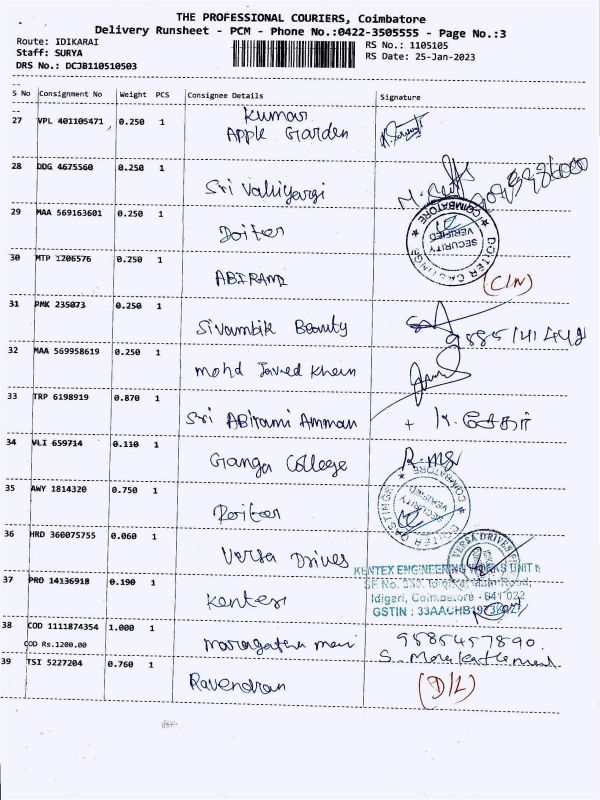 THE PROFESSIONAL COURIERS, Coimbatore
Delivery Runsheet - PCM - Phone No.:0422-3505555 - Page No.:3
Route: IDIKARAI
Staff: SURYA
DRS No.: DCJB110510503
RS No.: 1105105
RS Date: 25-Jan-2023
S No Consignment No Weight PCS Consignee Details Signature
27 VPL 401105471 0.250 1 Kumar
Apple Garden
28 DDG 4675560 0.250 1 Sri
29 MAA 569163601 0.250 1 Doiter
COIMBATORE
SECURITY
VERIFIED
DOITER CASTINGS
30 MTP 1206576 0.250 1 ABIRAMI
(C/N)
31 PMK 235073 0.250 1 Beauty
32 MAA 569958619 0.250 1 mohd Javed Khan
33 TRP 6198919 0.870 1 Sri ABirami Amman
34 VLI 659714 0.110 1 Ganga College
35 AWY 1814320 0.750 1 Doiter
COIMBATORE
SECURITY
VERIFIED
DOITER CASTINGS
36 HRD 360075755 0.060 1 Versa Drives
VERSA DRIVES
37 PRO 14136918 0.190 1 Kentex
KENTEX ENGINEERING WORKS UNIT
Idigarai, Coimbatore - 641 022
GSTIN : 33AACHB
38 COD 1111874354 1.000 1 maragatha mani 9585457890
COD Rs.1200.00
39 TSI 5227204 0.760 1 Ravendran (D/L)